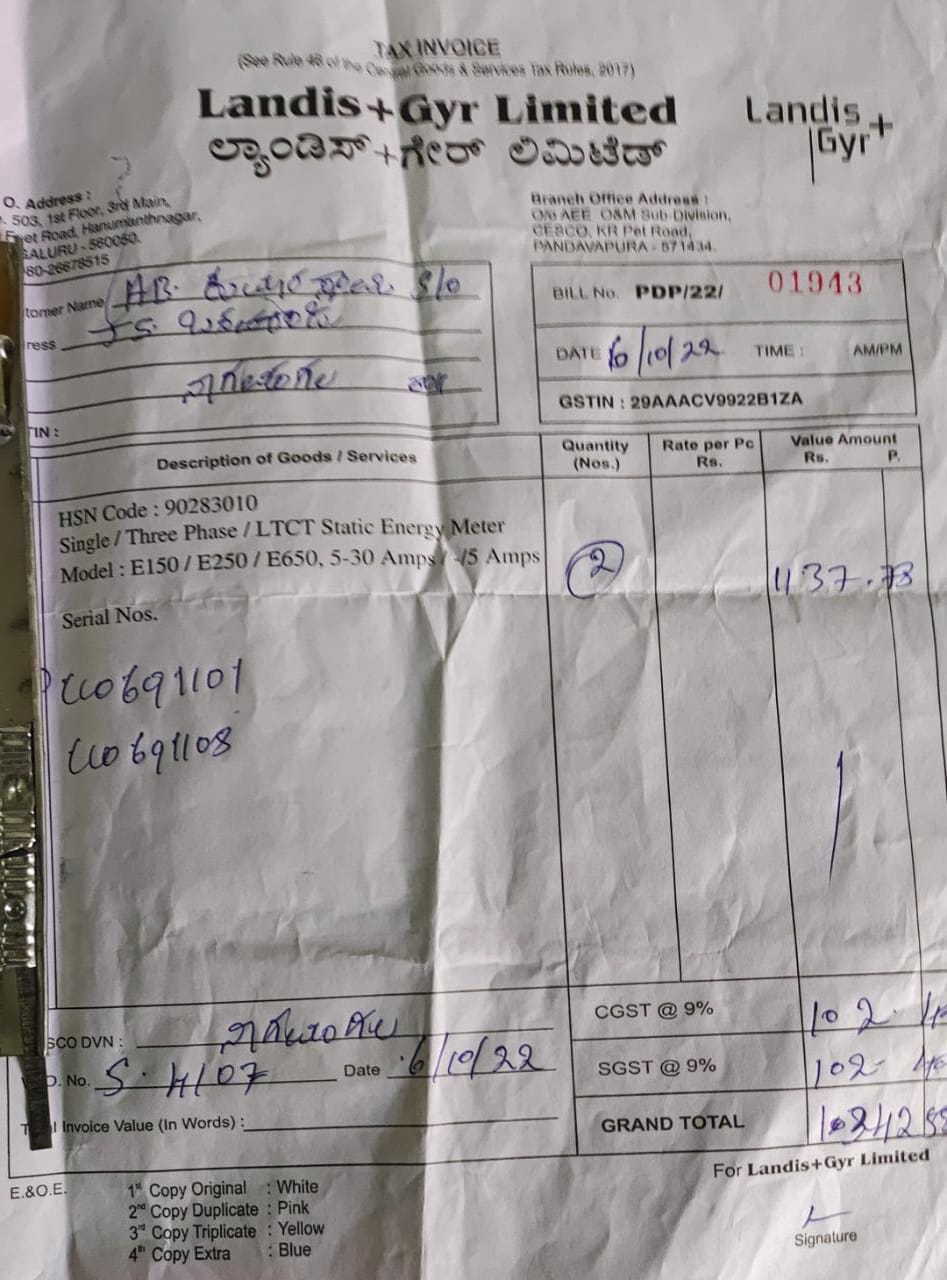 TAX INVOICE
(See Rule 46 of the Central Goods & Services Tax Rules, 2017)
Landis+Gyr Limited
ಲ್ಯಾಂಡಿಸ್+ಗೇರ್ ಲಿಮಿಟೆಡ್
Landis+
Gyr
O. Address :
503, 1st Floor, 3rd Main,
Road, Hanumanthnagar,
GALURU - 560050.
80-26678515
Branch Office Address :
O/o AEE O&M Sub-Division,
CESCO, KR Pet Road,
PANDAVAPURA - 571434.
tomer Name S/o
ress
TIN :
BILL No. PDP/22/ 01943
DATE 6/10/22 TIME : AM/PM
GSTIN : 29AAACV9922B1ZA
Description of Goods / Services
Quantity (Nos.)
Rate per Pc Rs.
Value Amount Rs. P.
HSN Code : 90283010
Single / Three Phase / LTCT Static Energy Meter
Model : E150 / E250 / E650, 5-30 Amps / -/5 Amps
2
1137.73
Serial Nos.
691101
691108
SCO DVN :
No. S. Date 6/10/22
Invoice Value (In Words) :
CGST @ 9% 102
SGST @ 9% 102
GRAND TOTAL
For Landis+Gyr Limited
E.&O.E.
1st Copy Original : White
2nd Copy Duplicate : Pink
3rd Copy Triplicate : Yellow
4th Copy Extra : Blue
Signature